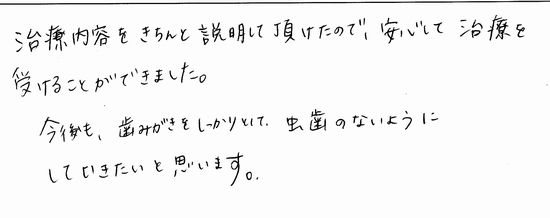 治療内容をきちんと説明して頂けたので、安心して治療を
受けることができました。
今後も、歯みがきをしっかりとして、虫歯のないように
していきたいと思います。